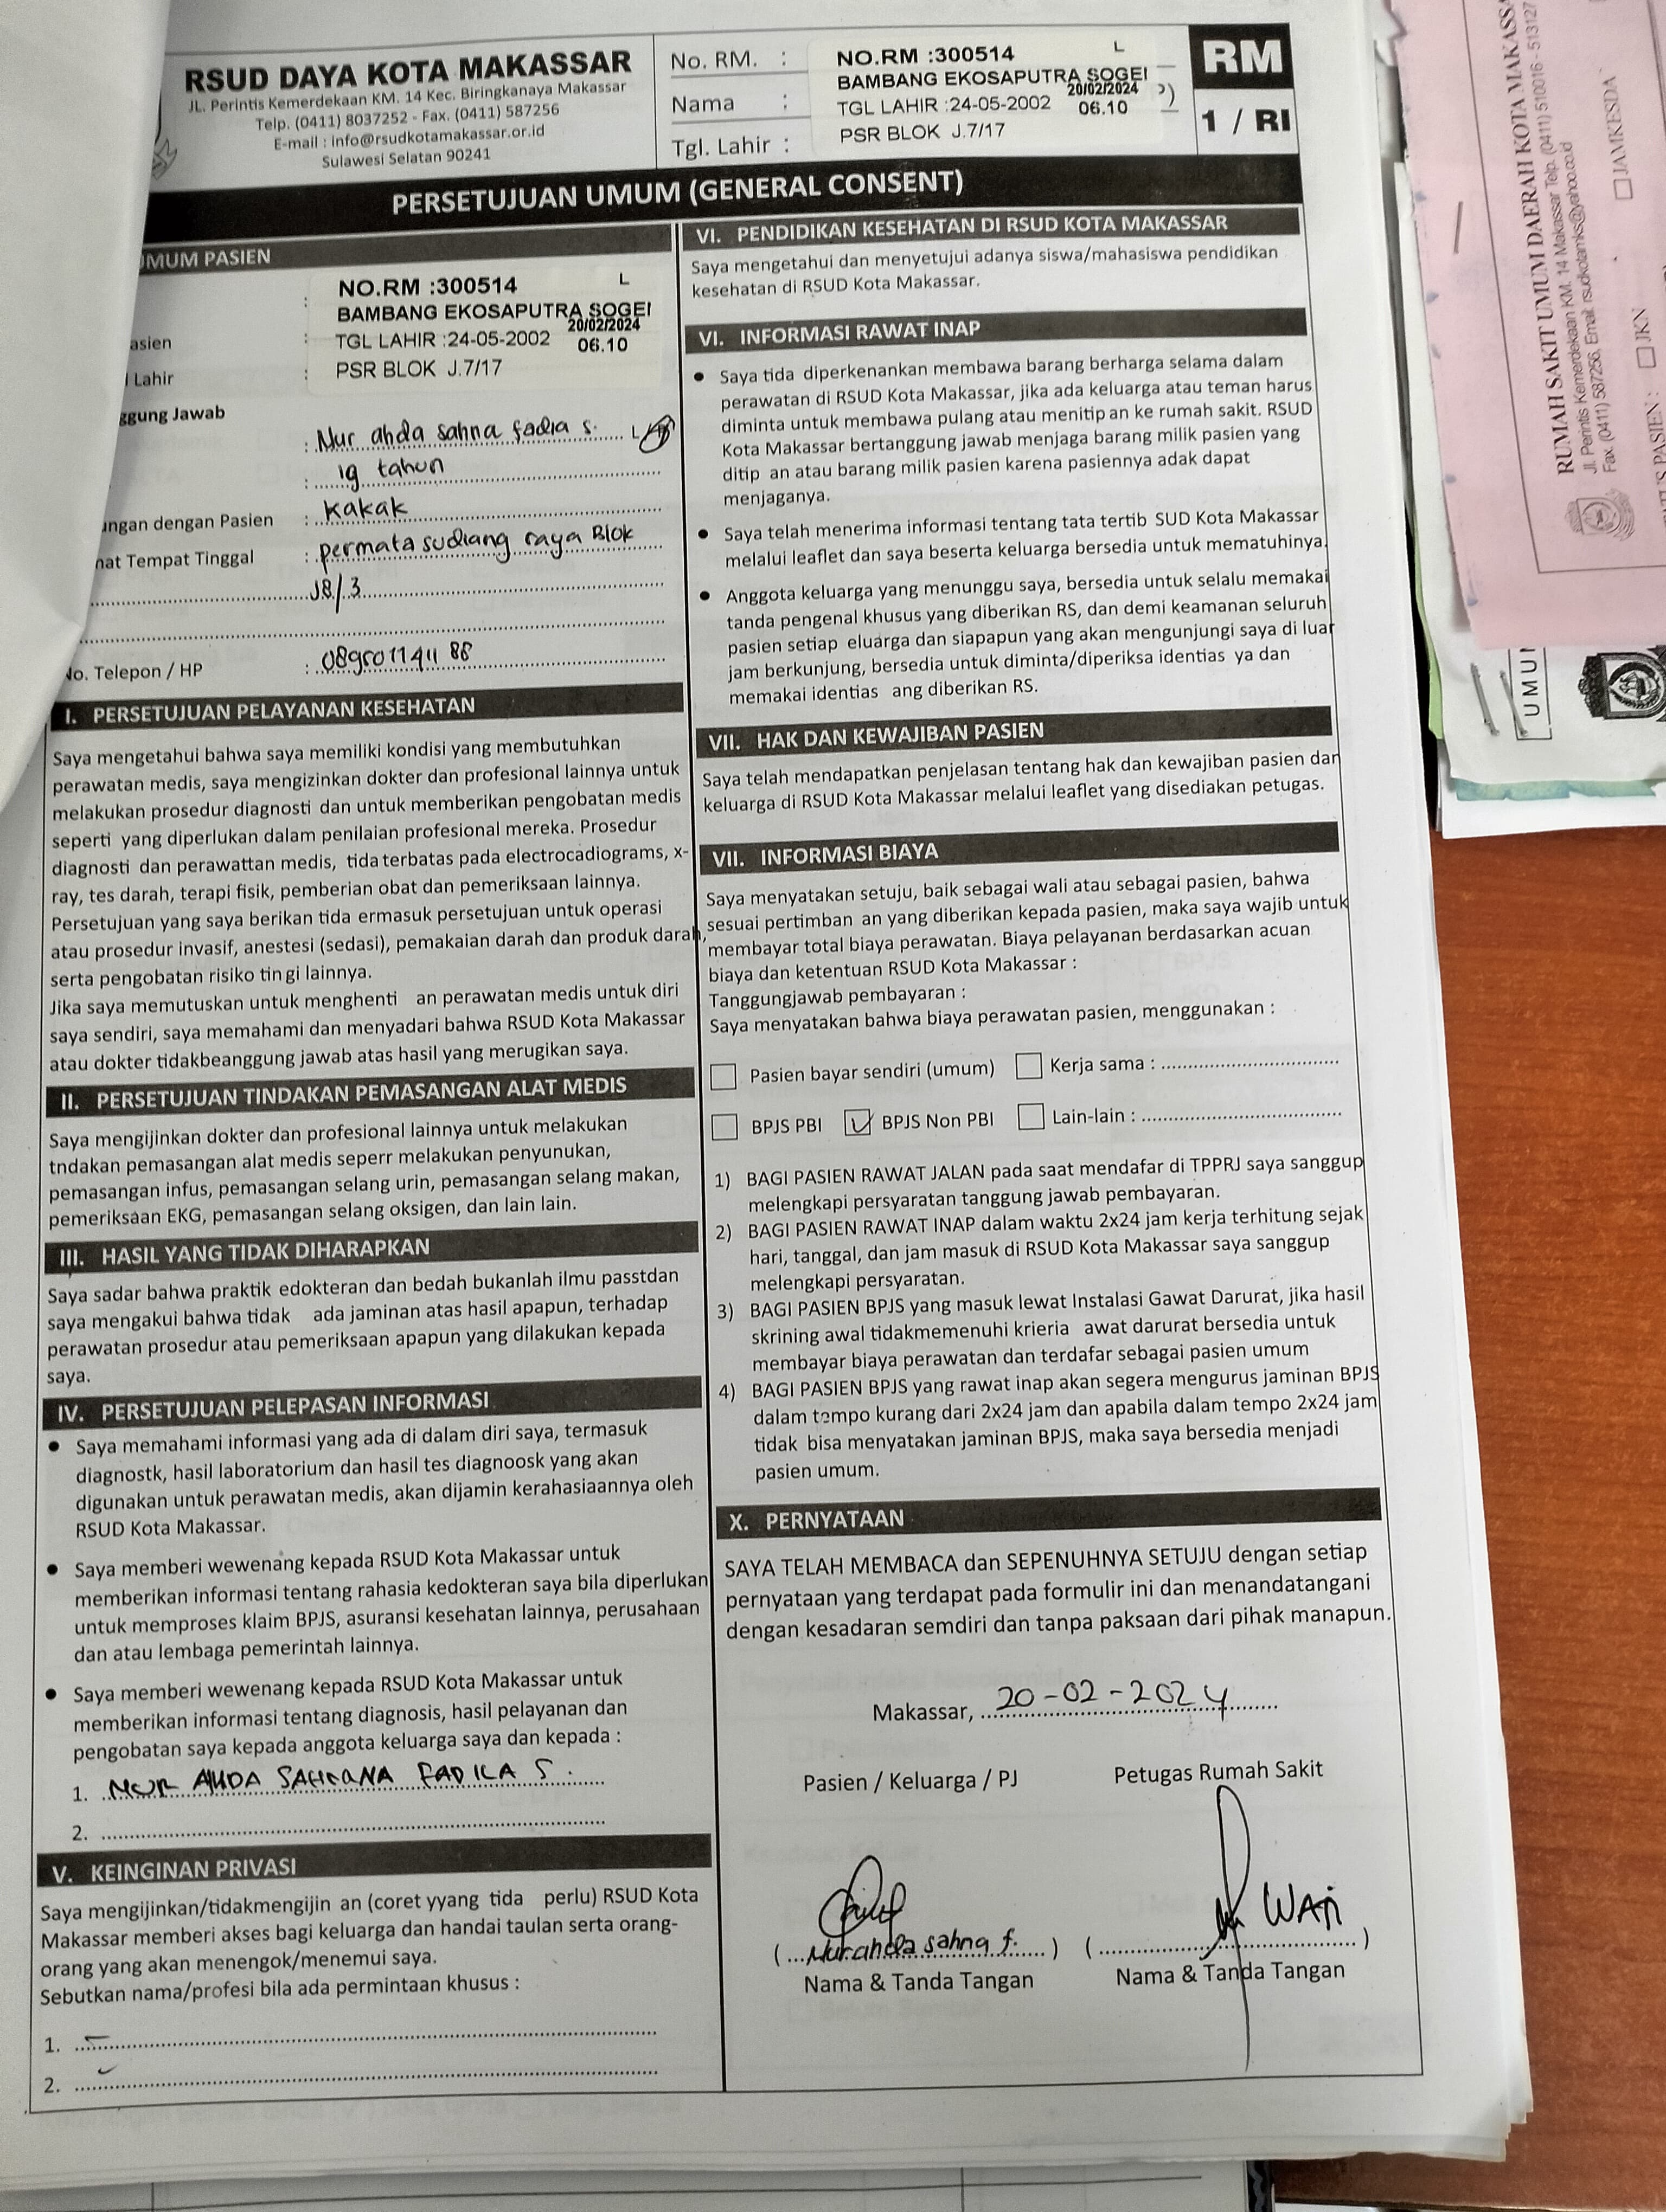 RSUD DAYA KOTA MAKASSAR
JL. Perintis Kemerdekaan KM. 14 Kec. Biringkanaya Makassar
Telp. (0411) 8037252 - Fax. (0411) 587256
E-mail : info@rsudkotamakassar.or.id
Sulawesi Selatan 90241
No. RM. :
Nama :
Tgl. Lahir :
NO.RM :300514 L
BAMBANG EKOSAPUTRA SOGEI
20/02/2024
TGL LAHIR :24-05-2002 06.10
PSR BLOK J.7/17
RM
1 / RI
PERSETUJUAN UMUM (GENERAL CONSENT)
UMUM PASIEN
NO.RM :300514 L
BAMBANG EKOSAPUTRA SOGEI
20/02/2024
asien : TGL LAHIR :24-05-2002 06.10
Lahir : PSR BLOK J.7/17
ggung Jawab
: Nur ahda sahna fadia s. L
: 19 tahun
ngan dengan Pasien : Kakak
at Tempat Tinggal : permata sudiang raya Blok
J8/3
No. Telepon / HP : 089501141188
I. PERSETUJUAN PELAYANAN KESEHATAN
Saya mengetahui bahwa saya memiliki kondisi yang membutuhkan
perawatan medis, saya mengizinkan dokter dan profesional lainnya untuk
melakukan prosedur diagnosti dan untuk memberikan pengobatan medis
seperti yang diperlukan dalam penilaian profesional mereka. Prosedur
diagnosti dan perawattan medis, tida terbatas pada electrocadiograms, x-
ray, tes darah, terapi fisik, pemberian obat dan pemeriksaan lainnya.
Persetujuan yang saya berikan tida ermasuk persetujuan untuk operasi
atau prosedur invasif, anestesi (sedasi), pemakaian darah dan produk darah,
serta pengobatan risiko tin gi lainnya.
Jika saya memutuskan untuk menghenti an perawatan medis untuk diri
saya sendiri, saya memahami dan menyadari bahwa RSUD Kota Makassar
atau dokter tidakbeanggung jawab atas hasil yang merugikan saya.
II. PERSETUJUAN TINDAKAN PEMASANGAN ALAT MEDIS
Saya mengijinkan dokter dan profesional lainnya untuk melakukan
tndakan pemasangan alat medis seperr melakukan penyunukan,
pemasangan infus, pemasangan selang urin, pemasangan selang makan,
pemeriksaan EKG, pemasangan selang oksigen, dan lain lain.
III. HASIL YANG TIDAK DIHARAPKAN
Saya sadar bahwa praktik edokteran dan bedah bukanlah ilmu passtdan
saya mengakui bahwa tidak ada jaminan atas hasil apapun, terhadap
perawatan prosedur atau pemeriksaan apapun yang dilakukan kepada
saya.
IV. PERSETUJUAN PELEPASAN INFORMASI
• Saya memahami informasi yang ada di dalam diri saya, termasuk
diagnostk, hasil laboratorium dan hasil tes diagnoosk yang akan
digunakan untuk perawatan medis, akan dijamin kerahasiaannya oleh
RSUD Kota Makassar.
• Saya memberi wewenang kepada RSUD Kota Makassar untuk
memberikan informasi tentang rahasia kedokteran saya bila diperlukan
untuk memproses klaim BPJS, asuransi kesehatan lainnya, perusahaan
dan atau lembaga pemerintah lainnya.
• Saya memberi wewenang kepada RSUD Kota Makassar untuk
memberikan informasi tentang diagnosis, hasil pelayanan dan
pengobatan saya kepada anggota keluarga saya dan kepada :
1. NUR AHDA SAHDANA FADILA S.
2.
V. KEINGINAN PRIVASI
Saya mengijinkan/tidakmengijin an (coret yyang tida perlu) RSUD Kota
Makassar memberi akses bagi keluarga dan handai taulan serta orang-
orang yang akan menengok/menemui saya.
Sebutkan nama/profesi bila ada permintaan khusus :
1.
2.
VI. PENDIDIKAN KESEHATAN DI RSUD KOTA MAKASSAR
Saya mengetahui dan menyetujui adanya siswa/mahasiswa pendidikan
kesehatan di RSUD Kota Makassar.
VI. INFORMASI RAWAT INAP
• Saya tida diperkenankan membawa barang berharga selama dalam
perawatan di RSUD Kota Makassar, jika ada keluarga atau teman harus
diminta untuk membawa pulang atau menitip an ke rumah sakit. RSUD
Kota Makassar bertanggung jawab menjaga barang milik pasien yang
ditip an atau barang milik pasien karena pasiennya adak dapat
menjaganya.
• Saya telah menerima informasi tentang tata tertib SUD Kota Makassar
melalui leaflet dan saya beserta keluarga bersedia untuk mematuhinya.
• Anggota keluarga yang menunggu saya, bersedia untuk selalu memakai
tanda pengenal khusus yang diberikan RS, dan demi keamanan seluruh
pasien setiap eluarga dan siapapun yang akan mengunjungi saya di luar
jam berkunjung, bersedia untuk diminta/diperiksa identias ya dan
memakai identias ang diberikan RS.
VII. HAK DAN KEWAJIBAN PASIEN
Saya telah mendapatkan penjelasan tentang hak dan kewajiban pasien dan
keluarga di RSUD Kota Makassar melalui leaflet yang disediakan petugas.
VII. INFORMASI BIAYA
Saya menyatakan setuju, baik sebagai wali atau sebagai pasien, bahwa
sesuai pertimban an yang diberikan kepada pasien, maka saya wajib untuk
membayar total biaya perawatan. Biaya pelayanan berdasarkan acuan
biaya dan ketentuan RSUD Kota Makassar :
Tanggungjawab pembayaran :
Saya menyatakan bahwa biaya perawatan pasien, menggunakan :
Pasien bayar sendiri (umum) Kerja sama :
BPJS PBI BPJS Non PBI Lain-lain :
1) BAGI PASIEN RAWAT JALAN pada saat mendafar di TPPRJ saya sanggup
melengkapi persyaratan tanggung jawab pembayaran.
2) BAGI PASIEN RAWAT INAP dalam waktu 2x24 jam kerja terhitung sejak
hari, tanggal, dan jam masuk di RSUD Kota Makassar saya sanggup
melengkapi persyaratan.
3) BAGI PASIEN BPJS yang masuk lewat Instalasi Gawat Darurat, jika hasil
skrining awal tidakmemenuhi krieria awat darurat bersedia untuk
membayar biaya perawatan dan terdafar sebagai pasien umum
4) BAGI PASIEN BPJS yang rawat inap akan segera mengurus jaminan BPJS
dalam tempo kurang dari 2x24 jam dan apabila dalam tempo 2x24 jam
tidak bisa menyatakan jaminan BPJS, maka saya bersedia menjadi
pasien umum.
X. PERNYATAAN
SAYA TELAH MEMBACA dan SEPENUHNYA SETUJU dengan setiap
pernyataan yang terdapat pada formulir ini dan menandatangani
dengan kesadaran semdiri dan tanpa paksaan dari pihak manapun.
Makassar, 20-02-2024
Pasien / Keluarga / PJ Petugas Rumah Sakit
WAN
( Nur ahda sahna f. ) ( )
Nama & Tanda Tangan Nama & Tanda Tangan
RUMAH SAKIT UMUM DAERAH KOTA MAKASSA
Jl. Perintis Kemerdekaan KM. 14 Makassar Telp. (0411) 510016 - 513127
Fax. (0411) 587256, Email: rsudkotamks@yahoo.co.id
PASIEN : JKN JAMKESDA
UMUM